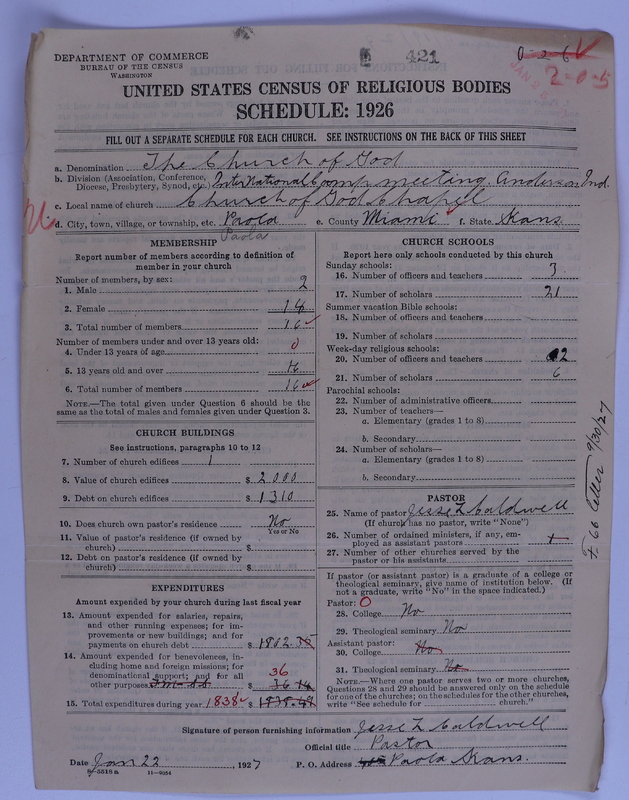 421
0-0-6
2-0-5
DEPARTMENT OF COMMERCE
BUREAU OF THE CENSUS
WASHINGTON
UNITED STATES CENSUS OF RELIGIOUS BODIES
SCHEDULE: 1926
FILL OUT A SEPARATE SCHEDULE FOR EACH CHURCH. SEE INSTRUCTIONS ON THE BACK OF THIS SHEET
a. Denomination The Church of God
b. Division (Association, Conference, Diocese, Presbytery, Synod, etc.) International Camp meeting Anderson Ind.
c. Local name of church Church of God Chapel
d. City, town, village, or township, etc. Paola e. County Miami f. State Kans.
Paola
MEMBERSHIP
Report number of members according to definition of
member in your church
Number of members, by sex:
1. Male 2
2. Female 14
3. Total number of members 16
Number of members under and over 13 years old:
4. Under 13 years of age 0
5. 13 years old and over
6. Total number of members 16
NOTE.—The total given under Question 6 should be the
same as the total of males and females given under Question 3.
CHURCH BUILDINGS
See instructions, paragraphs 10 to 12
7. Number of church edifices 1
8. Value of church edifices $ 2000
9. Debt on church edifices $ 1310
10. Does church own pastor's residence No
Yes or No
11. Value of pastor's residence (if owned by
church) $
12. Debt on pastor's residence (if owned by
church) $
EXPENDITURES
Amount expended by your church during last fiscal year
13. Amount expended for salaries, repairs,
and other running expenses; for im-
provements or new buildings; and for
payments on church debt $ 1802.35
14. Amount expended for benevolences, in-
cluding home and foreign missions; for
denominational support; and for all 36
other purposes $ 36.14
15. Total expenditures during year 1838 $ 1838.49
CHURCH SCHOOLS
Report here only schools conducted by this church
Sunday schools:
16. Number of officers and teachers 3
17. Number of scholars 21
Summer vacation Bible schools:
18. Number of officers and teachers
19. Number of scholars
Week-day religious schools:
20. Number of officers and teachers 2
21. Number of scholars 6
Parochial schools:
22. Number of administrative officers
23. Number of teachers—
a. Elementary (grades 1 to 8)
b. Secondary
24. Number of scholars—
a. Elementary (grades 1 to 8)
b. Secondary
PASTOR
25. Name of pastor Jesse L Caldwell
(If church has no pastor, write "None")
26. Number of ordained ministers, if any, em-
ployed as assistant pastors
27. Number of other churches served by the
pastor or his assistants
If pastor (or assistant pastor) is a graduate of a college or
theological seminary, give name of institution below. (If
not a graduate, write "No" in the space indicated.)
Pastor: 0
28. College No
29. Theological seminary No
Assistant pastor:
30. College No
31. Theological seminary No
NOTE.—Where one pastor serves two or more churches,
Questions 28 and 29 should be answered only on the schedule
for one of the churches; on the schedules for the other churches,
write "See schedule for church."
F. 66 letter 9/30/27
Signature of person furnishing information Jesse L Caldwell
Official title Pastor
Date Jan 22, 1927 P. O. Address Paola Kans.
8-5518a 11-9054